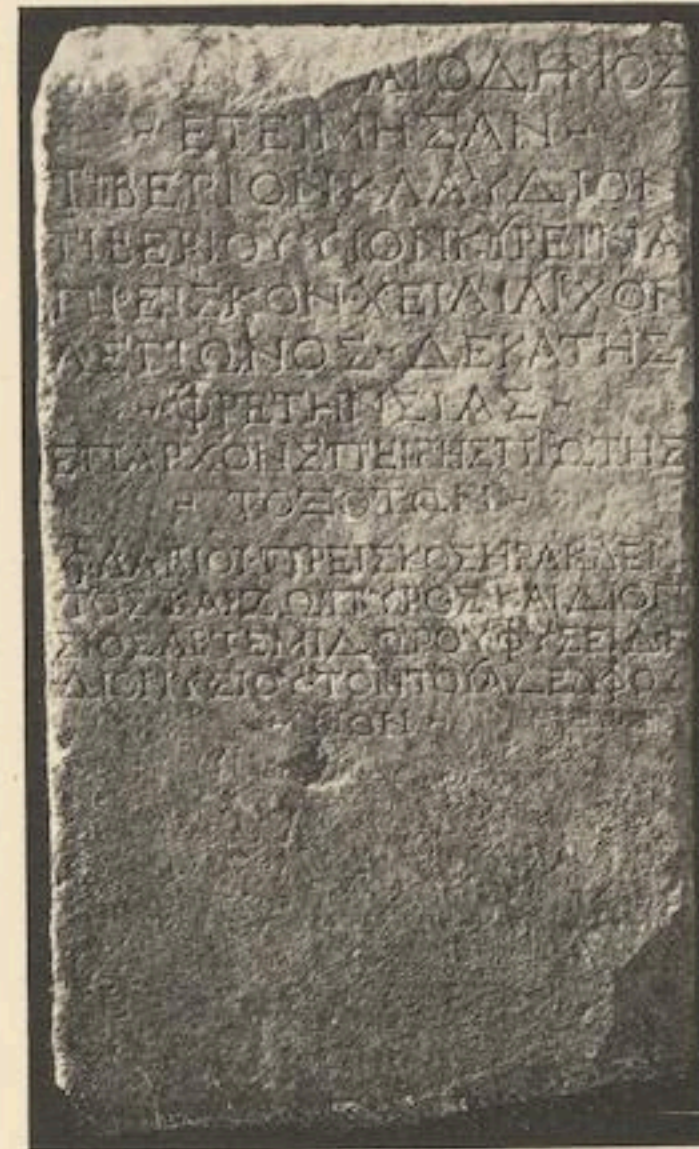 ΑΙΟΔΗΜΟΣ
ΕΤΕΙΜΗΣΑΝ
ΤΙΒΕΡΙΟΝΚΛΑΥΔΙΟΝ
ΤΙΒΕΡΙΟΥΥΙΟΝΚΥΡΕΙΝΑ
ΠΡΕΙΣΚΟΝΧΕΙΛΙΑΡΧΟΝ
ΛΕΓΙΩΝΟΣ ΔΕΚΑΤΗΣ
ΦΡΕΤΗΝΣΙΑΣ
ΕΠΑΡΧΟΝΣΠΕΙΡΗΣΠΡΩΤΗΣ
ΤΟΞΟΤΩΝ
ΠΡΕΙΣΚΟΣΗΡΑΚΛΕΙ
ΤΟΣΚΑΙΖΩΠΥΡΟΣΚΑΙΔΙΟΝΥ
ΣΙΟΣΑΡΤΕΜΙΔΩΡΟΥΦΥΣΕΙΔΕ
ΔΙΟΝΥΣΙΟΥΤΟΝΤΟΥΑΔΕΛΦΟΥ
ΥΙΟΝ